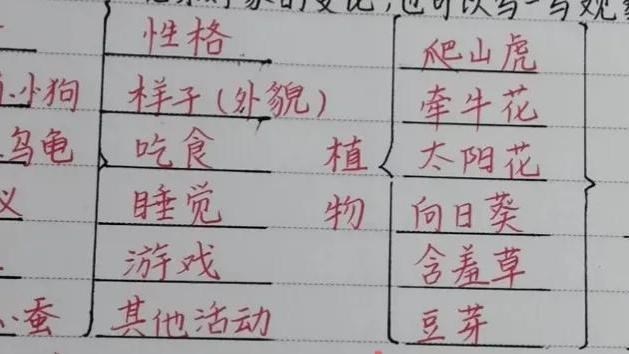 性格
爬山虎
小狗
样子(外貌)
牵牛花
乌龟
吃食
植
太阳花
睡觉
物
向日葵
游戏
含羞草
蚕
其他活动
豆芽